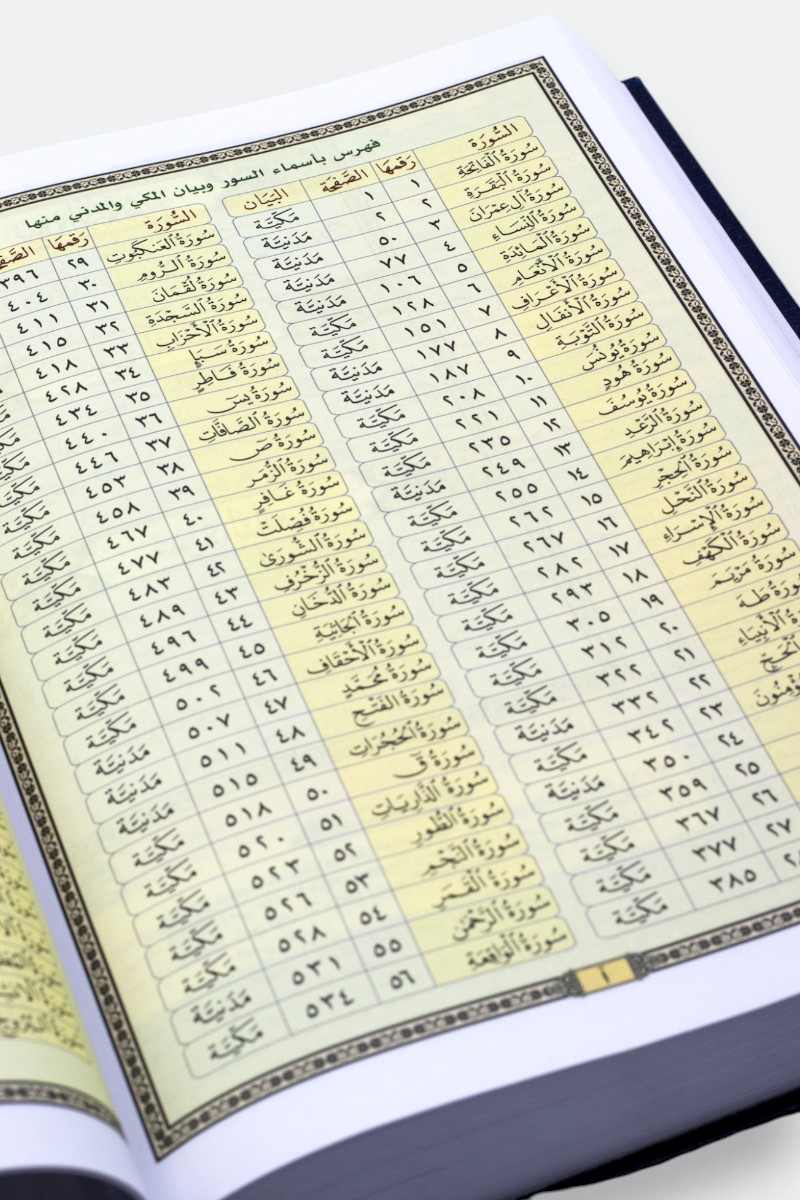 فهرس بأسماء السور وبيان المكي والمدني منها
السُّورَة رَقمها الصَّفحَة البَيَان
سُورَةُ الفَاتِحَة ١ ١ مَكيَّة
سُورَةُ البَقَرَة ٢ ٢ مَدَنيَّة
سُورَةُ آل عِمرَان ٣ ٥٠ مَدَنيَّة
سُورَةُ النِّسَاء ٤ ٧٧ مَدَنيَّة
سُورَةُ المَائدَة ٥ ١٠٦ مَدَنيَّة
سُورَةُ الأَنْعَام ٦ ١٢٨ مَكيَّة
سُورَةُ الأَعْرَاف ٧ ١٥١ مَكيَّة
سُورَةُ الأَنفَال ٨ ١٧٧ مَدَنيَّة
سُورَةُ التَّوبَة ٩ ١٨٧ مَدَنيَّة
سُورَةُ يُونُس ١٠ ٢٠٨ مَكيَّة
سُورَةُ هُود ١١ ٢٢١ مَكيَّة
سُورَةُ يُوسُف ١٢ ٢٣٥ مَكيَّة
سُورَةُ الرَّعْد ١٣ ٢٤٩ مَدَنيَّة
سُورَةُ إِبْرَاهِيم ١٤ ٢٥٥ مَكيَّة
سُورَةُ الحِجْر ١٥ ٢٦٢ مَكيَّة
سُورَةُ النَّحْل ١٦ ٢٦٧ مَكيَّة
سُورَةُ الإسْرَاء ١٧ ٢٨٢ مَكيَّة
سُورَةُ الكَهْف ١٨ ٢٩٣ مَكيَّة
سُورَةُ مَرْيَم ١٩ ٣٠٥ مَكيَّة
سُورَةُ طه ٢٠ ٣١٢ مَكيَّة
الأَنْبيَاء ٢١ ٣٢٢ مَكيَّة
الحَجّ ٢٢ ٣٣٢ مَدَنيَّة
٢٣ ٣٤٢ مَكيَّة
٢٤ ٣٥٠ مَدَنيَّة
٢٥ ٣٥٩ مَكيَّة
٢٦ ٣٦٧ مَكيَّة
٢٧ ٣٧٧ مَكيَّة
٣٨٥ مَكيَّة
السُّورَة رَقمها
سُورَةُ العَنكَبُوت ٢٩ ٣٩٦
سُورَةُ الرُّوم ٣٠ ٤٠٤
سُورَةُ لُقْمَان ٣١ ٤١١
سُورَةُ السَّجْدَة ٣٢ ٤١٥
سُورَةُ الأَحْزَاب ٣٣ ٤١٨
سُورَةُ سَبَإ ٣٤ ٤٢٨
سُورَةُ فَاطِر ٣٥ ٤٣٤
سُورَةُ يس ٣٦ ٤٤٠
سُورَةُ الصَّافَّات ٣٧ ٤٤٦ مَكيَّة
سُورَةُ ص ٣٨ ٤٥٣ مَكيَّة
سُورَةُ الزُّمَر ٣٩ ٤٥٨ مَكيَّة
سُورَةُ غَافِر ٤٠ ٤٦٧ مَكيَّة
سُورَةُ فُصِّلَتْ ٤١ ٤٧٧ مَكيَّة
سُورَةُ الشُّورَى ٤٢ ٤٨٣ مَكيَّة
سُورَةُ الزُّخْرُف ٤٣ ٤٨٩ مَكيَّة
سُورَةُ الدُّخَان ٤٤ ٤٩٦ مَكيَّة
سُورَةُ الجَاثِيَة ٤٥ ٤٩٩ مَكيَّة
سُورَةُ الأَحْقَاف ٤٦ ٥٠٢ مَكيَّة
سُورَةُ مُحَمَّد ٤٧ ٥٠٧ مَدَنيَّة
سُورَةُ الفَتْح ٤٨ ٥١١ مَدَنيَّة
سُورَةُ الحُجُرَات ٤٩ ٥١٥ مَدَنيَّة
سُورَةُ ق ٥٠ ٥١٨ مَكيَّة
سُورَةُ الذَّاريَات ٥١ ٥٢٠ مَكيَّة
سُورَةُ الطُّور ٥٢ ٥٢٣ مَكيَّة
سُورَةُ النَّجْم ٥٣ ٥٢٦ مَكيَّة
سُورَةُ القَمَر ٥٤ ٥٢٨ مَكيَّة
سُورَةُ الرَّحْمن ٥٥ ٥٣١ مَدَنيَّة
سُورَةُ الوَاقِعَة ٥٦ ٥٣٤ مَكيَّة
أ